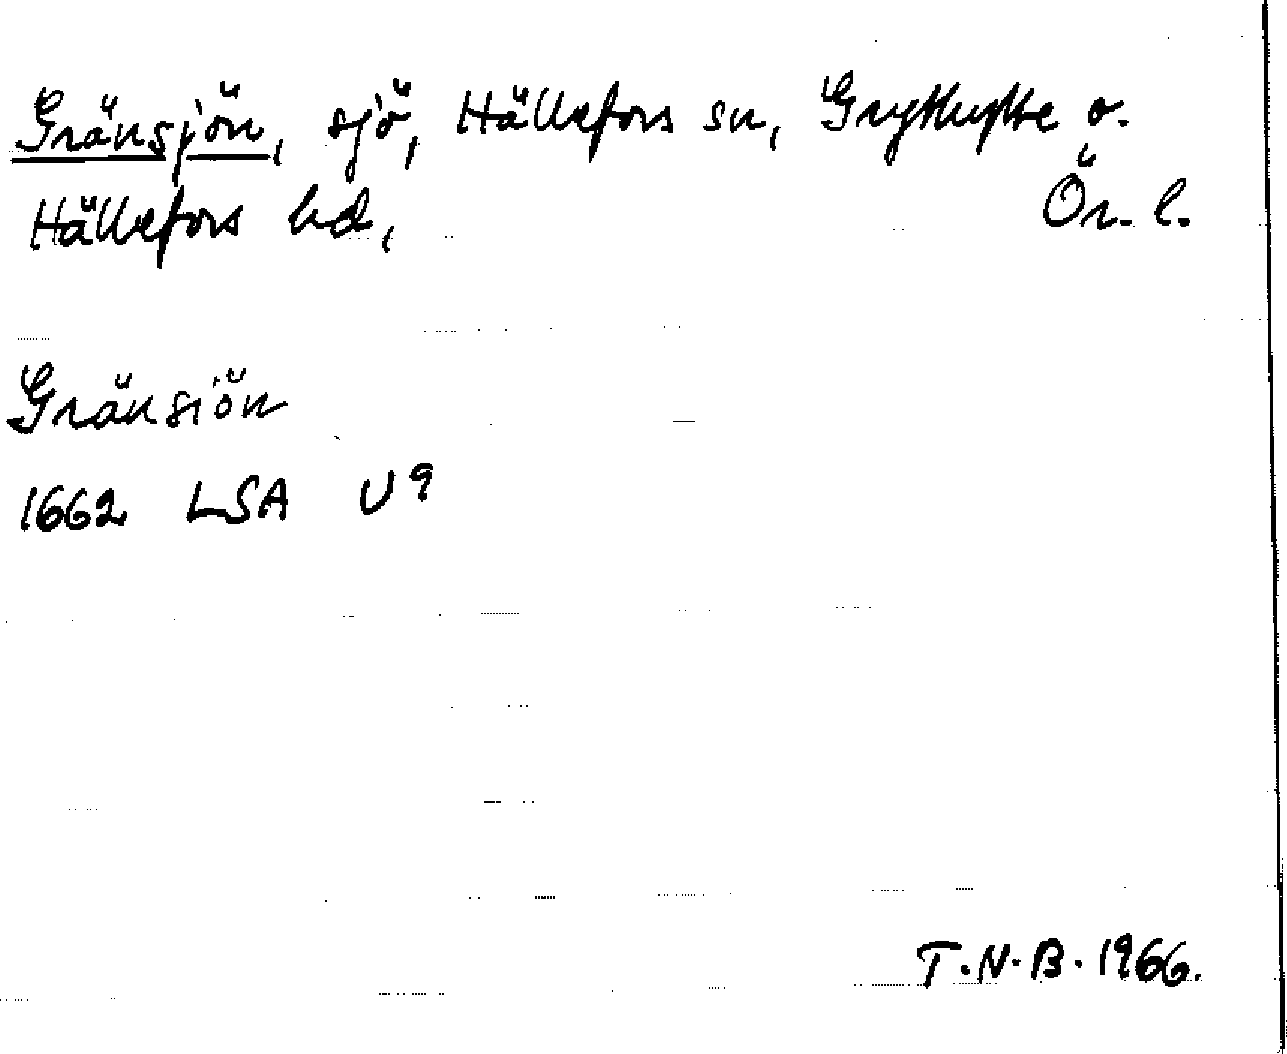 Gränsjön, sjö, Hällefors sn, Grythytte o.
Hällefors bd, Ör. l.
Gränsiön
1662 LSA U9
T.N.B. 1966.